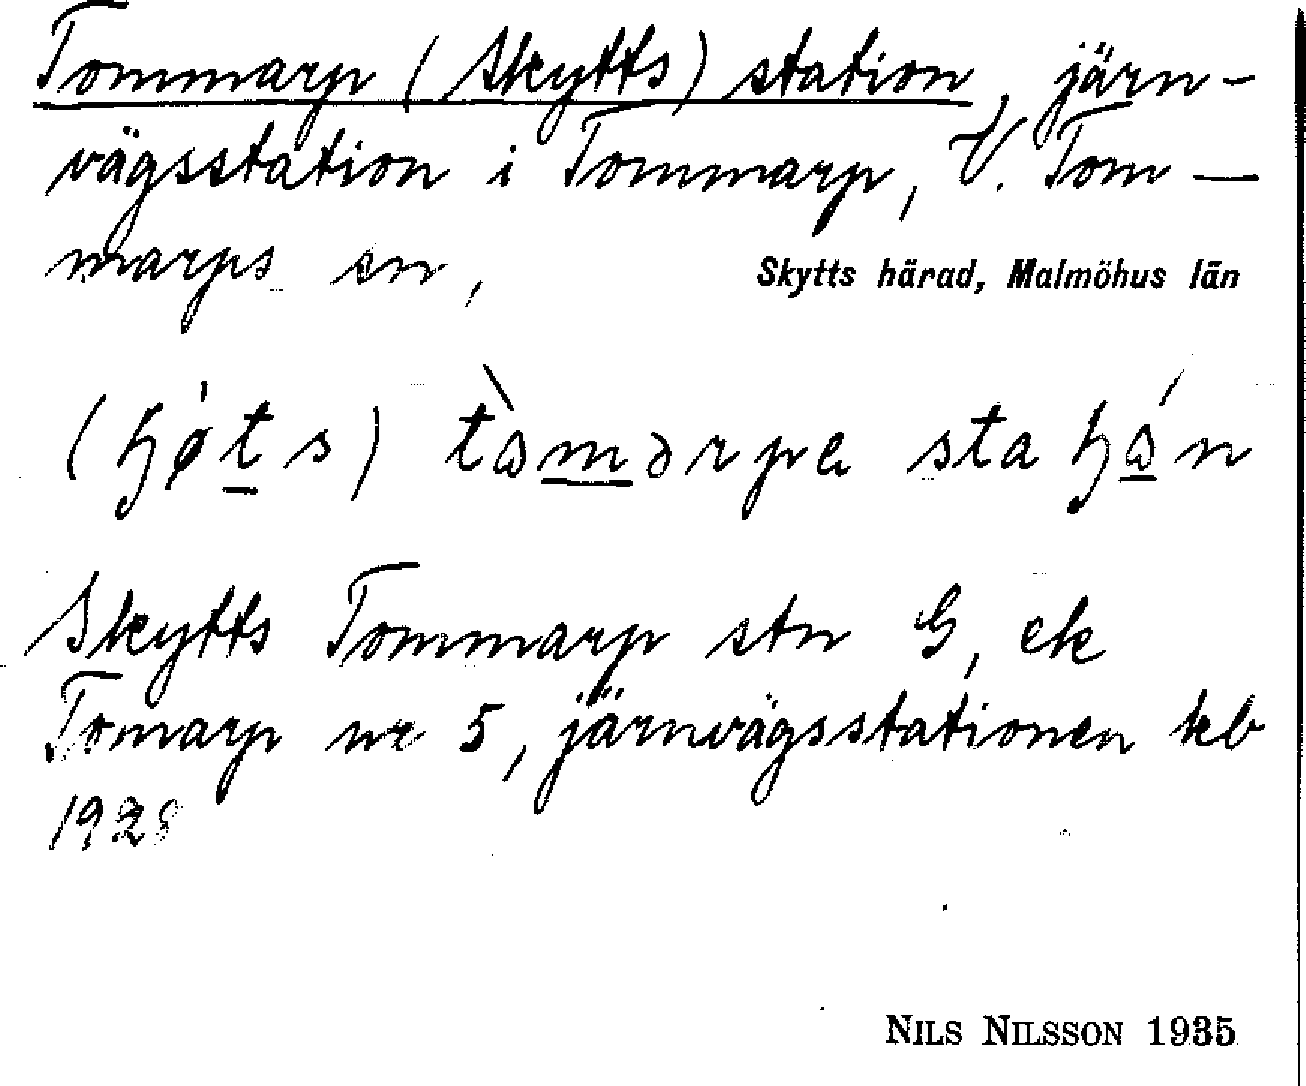 Tommarp (Skytts) station, järn-
vägsstation i Tommarp, V. Tom-
marps sn, Skytts härad, Malmöhus län
Skytts Tommarp stn G, ek
Tomarp nr 5, järnvägsstationen kb
1928
NILS NILSSON 1935